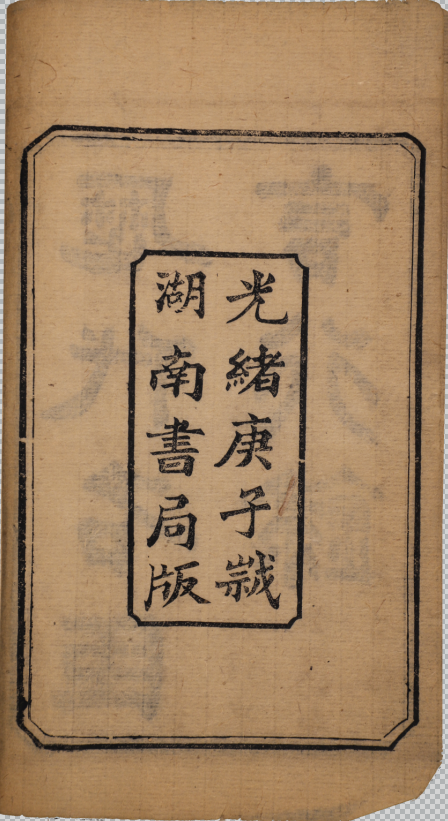 光緒庚子𡻕
湖南書局版